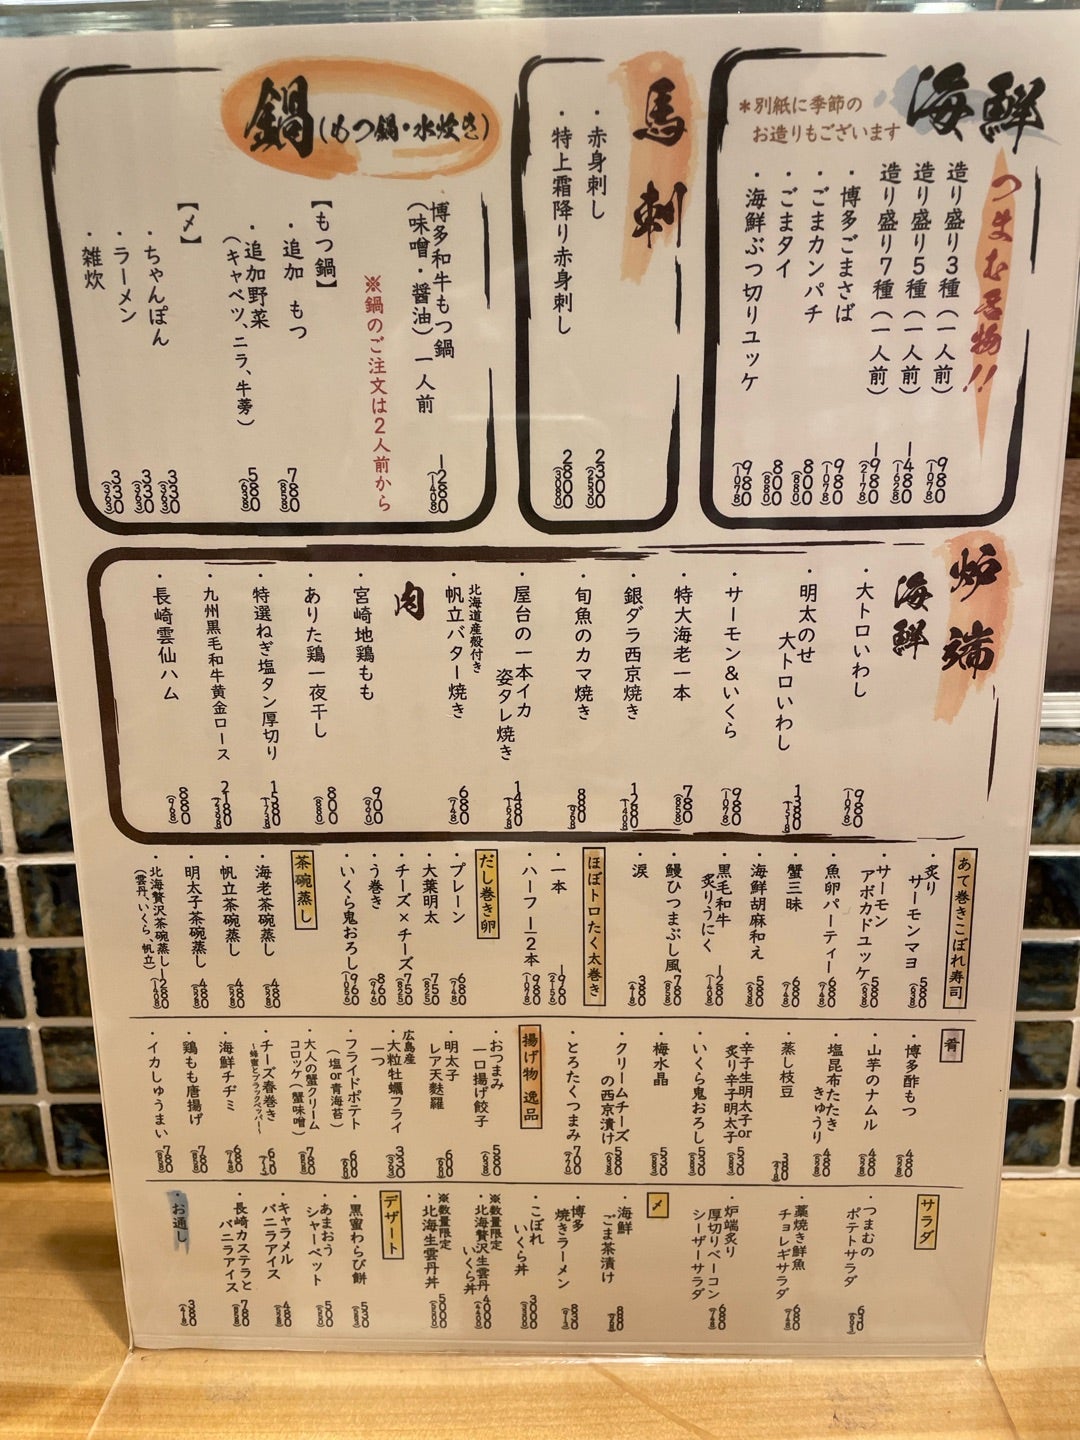 海鮮
つまむ名物!!
＊別紙に季節の
お造りもございます
造り盛り3種（一人前） 980 (1078)
造り盛り5種（一人前） 1480 (1628)
造り盛り7種（一人前） 1980 (2178)
・博多ごまさば 980 (1078)
・ごまカンパチ 800 (880)
・ごまタイ 800 (880)
・海鮮ぶつ切りユッケ 980 (1078)
馬刺
・赤身刺し 2300 (2530)
・特上霜降り赤身刺し 2800 (3080)
鍋（もつ鍋・水炊き）
博多和牛もつ鍋
（味噌・醤油）一人前 1280 (1408)
※鍋のご注文は2人前から
【もつ鍋】
・追加 もつ 780 (858)
・追加野菜 580 (638)
（キャベツ、ニラ、牛蒡）
【〆】
・ちゃんぽん 330
・ラーメン 330
・雑炊 330
炉端
海鮮
・大トロいわし 980 (1078)
・明太のせ
大トロいわし
・サーモン＆いくら 980 (1078)
・特大海老一本 780 (858)
・銀ダラ西京焼き 1280
・旬魚のカマ焼き 880
・屋台の一本イカ
姿タレ焼き 1480 (1628)
北海道産殻付き
・帆立バター焼き 680 (748)
肉
・宮崎地鶏もも 900
・ありた鶏一夜干し 800 (880)
・特選ねぎ塩タン厚切り 1580 (1738)
・九州黒毛和牛黄金ロース 2180 (2398)
・長崎雲仙ハム 880 (968)
あて巻きこぼれ寿司
・炙り
サーモンマヨ 580
・サーモン
アボカドユッケ 580
・魚卵パーティー 680 (748)
・蟹三昧 680
・海鮮胡麻和え 580
・黒毛和牛
炙りうにく 1280
・鰻ひつまぶし風 780
・涙 380 (418)
ほぼトロたく太巻き
・一本 1960 (2156)
・ハーフ1/2本 980 (1078)
だし巻き卵
・プレーン 680 (748)
・大葉明太 750
・チーズ×チーズ 750
・う巻き 860
・いくら鬼おろし 960 (1056)
茶碗蒸し
・海老茶碗蒸し 480 (528)
・帆立茶碗蒸し 480 (528)
・明太子茶碗蒸し 480 (528)
・北海贅沢茶碗蒸し 1280 (1408)
（雲丹、いくら、帆立）
肴
・博多酢もつ 480 (528)
・山芋のナムル 480 (528)
・塩昆布たたき
きゅうり 480 (528)
・蒸し枝豆 380 (418)
・辛子生明太子or
炙り辛子明太子 530
・いくら鬼おろし 580
・梅水晶
・クリームチーズ
の西京漬け 580
・とろたくつまみ 700 (770)
揚げ物 逸品
・おつまみ
一口揚げ餃子 580
・明太子
レア天麩羅 600
広島産
・大粒牡蠣フライ
一つ 330
・フライドポテト
（塩or青海苔） 600
・大人の蟹クリーム
コロッケ（蟹味噌） 780
・チーズ春巻き 650
～蜂蜜とブラックペッパー～
・海鮮チヂミ 680 (748)
・鶏もも唐揚げ 780
・イカしゅうまい 780
サラダ
・つまむの
ポテトサラダ
・藁焼き鮮魚
チョレギサラダ 680 (748)
・炉端炙り
厚切りベーコン
シーザーサラダ 680 (748)
〆
・海鮮
ごま茶漬け 880
・博多
焼きラーメン 830 (913)
・こぼれ
いくら丼 3000
※数量限定
・北海贅沢生雲丹
いくら丼 4000
※数量限定
・北海生雲丹丼 5000
デザート
・黒蜜わらび餅 530
・あまおう
シャーベット 500
・キャラメル
バニラアイス 480
・長崎カステラと
バニラアイス 780
・お通し 380 (418)